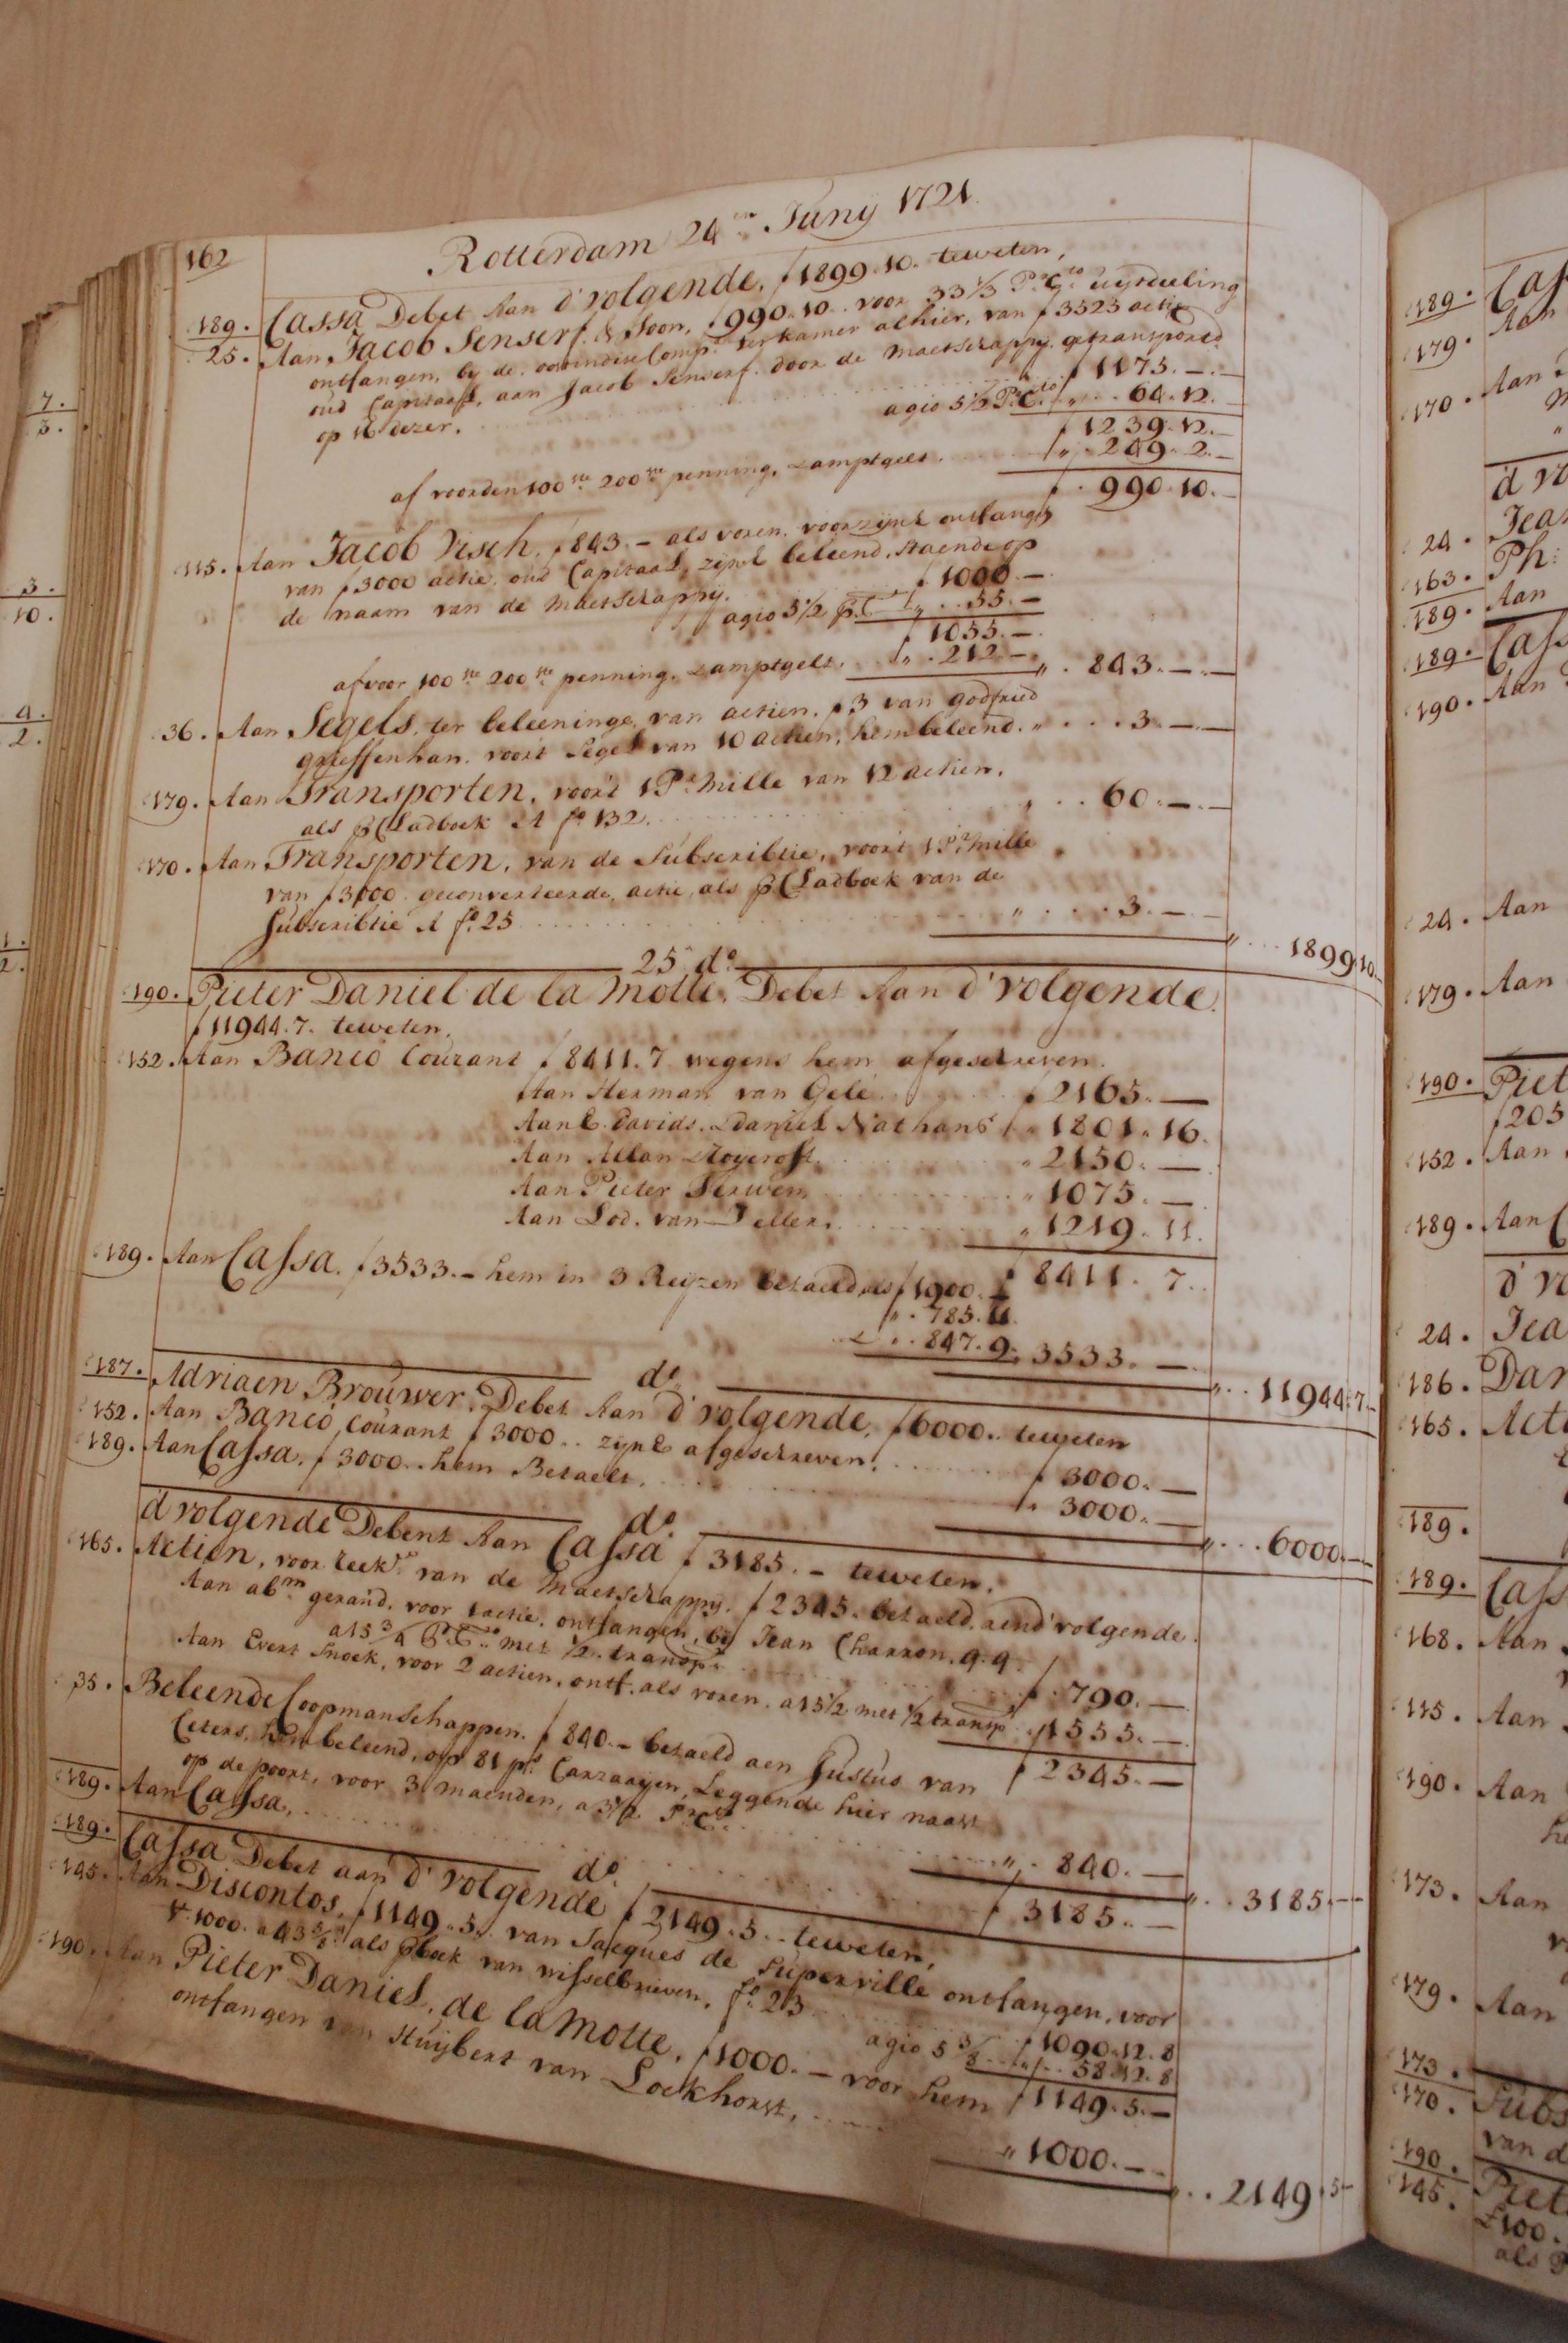 162
Rotterdam 24en Juny 1721
189. Cassa Debet Aan d'volgende, f 1899.10. teweten,
25. Aan Jacob Senserf & Soon, f 990.10.. voor 33 1/3 Pr Cto uijtdeeling
ontfangen, by de oostindise Comp: ter kamer alhier, van f 3525 actie
oud Capitaal, aan Jacob Senserf door de Maetschappy getransported
op 16 dezer. f 1175.—.—
agio 5 1/2 Pr Cto „ 64.12.—
f 1239.12.—
af voorden 100ste 200ste penning, & amptgelt. „ 249.2.—
f 990.10.—
115. Aan Jacob Visch, f 843.— als voren, voor zijnt ontfangen
van f 3000 actie, oud Capitaal, zijnt beleend, staende op
de naam van de Maetschappy. f 1000.—
agio 5 1/2 p Ct „ 55.—
f 1055.—
afvoor 100ste 200ste penning, & amptgelt. „ 212.— „ 843.—.—
36. Aan Segels, ter beleeninge, van actien. f 3 van godfried
voort Segel van 10 actien, hem beleend. „ 3.—.—
179. Aan Transporten, voor't 1 Pr Mille van 12 actien,
als p Cladboek A fo 132. „ 60.—.—
170. Aan Transporten, van de Subscribtie, voor't 1 Pr Mille
van f 3000 geconverteerde, actie, als p Cladboek van de
Subscribtie A fo 25 „ 3.—.—
„ 1899.10.—
25n do
190. Pieter Daniel de la Motte, Debet Aan d'volgende
f 11944.7. teweten.
152. Aan Banco Courant f 8411.7 wegens hem afgeschreven
Aan Herman van Gele f 2165.—
Aan C. Davids & Daniel Nathans „ 1801.16.
Aan Allan „ 2150.—
Aan Pieter „ 1075.—
Aan Lod. van „ 1219.11.
f 8411.7.
189. Aan Cassa. f 3533.— hem in 3 Reyzen betaeld, als f 1900.—
„ 785.11
& „ 847.9. 3533.—
„ 11944.7.—
do
187. Adriaen Brouwer, Debet Aan d'volgende, f 6000.. teweten
152. Aan Banco Courant f 3000.. zijnt afgeschreven. f 3000.—
189. Aan Cassa, f 3000.. hem Betaelt. „ 3000.—
„ 6000.—
do
d'volgende Debent Aan Cassa f 3185.— teweten,
165. Actien, voor Reek: van de Maetschappy. f 2345. betaeld, aend'volgende.
Aan abm geraud, voor 1 actie, ontfangen, by Jean Charron, q.q.
a 15 3/4 P Cto met 1/2 transpt f 790.—
Aan Evert Snoek, voor 2 actien, ontf. als voren. a 15 1/2 met 1/2 transp: „ 1555.—
f 2345.—
35. Beleende Coopmanschappen. f 840.— betaeld aen Justus van
Ceters, hem beleend, op 81 ps. Carzaayen, Leggende hier naast
op de poort, voor 3 maenden, a 3 1/2 Pr Cto „ 840.—
189. Aan Cassa, f 3185.— „ 3185.—
do
189. Cassa Debet aan d'volgende f 2149.5.. teweten,
145. Aan Discontos, f 1149.5. van Jacques de Superville ontfangen, voor
1000. a 43 5/8 als p boek van wisselbrieven, fo 23 f 1090.12.8
agio 5 3/8 „ 58.12.8
f 1149.5.—
190. Aan Pieter Daniel, de la Motte, f 1000.— voor hem
ontfangen van Huijbert van Lockhorst, „ 1000.—
„ 2149.5—
7.
3.
3.
10.
4.
2.
1.
2.
189.
179. Aan
170. Aan
24.
163. Ph:
189. Aan
189.
190. Aan
24. Aan
179. Aan
190.
152. Aan
189. Aan
24.
186.
165.
189.
189.
168. Aan
115. Aan
190. Aan
173. Aan
179. Aan
173.
170.
van d
190.
145.